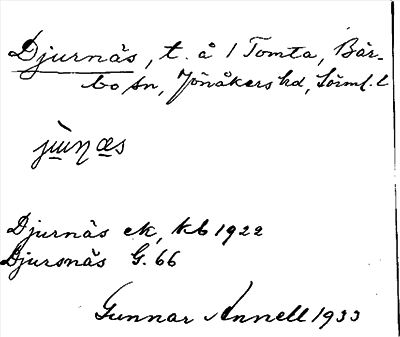 Djurnäs, t. å 1 Tomta, Bär-
bo sn, Jönåkers hd, Sörml. l
Djurnäs ek, kb 1922
Djursnäs G. 66
Gunnar Annell 1933